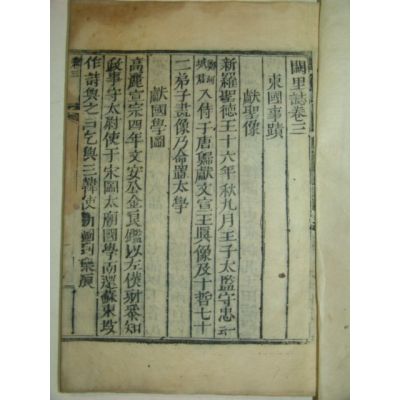 闕里誌卷三
東國事蹟
獻聖像
新羅聖德王十六年秋九月王子太監守忠
入侍于唐獻文宣王眞像及十哲七十
二弟子畫像乃命置太學
獻國學圖
高麗宣宗四年文安公金良鑑以左僕射叅知
政事守太尉使于宋圖太廟國學而還蘇東坡
作詩與之曰乞與三韓使圖到樂浪